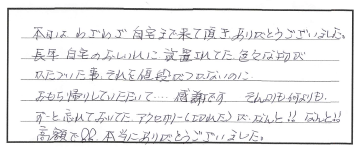 本日は わざわざ 自宅まで来て頂き ありがとうございました。
長年 自宅のおしいれに 放置されてた 色々な切手
かたづいた事、それを値段がつかないのに
おもち帰りしていただいて‥‥ 感謝です それよりも何よりも、
ずーと忘れておいてた アクセサリー(こわれた)が、なんと!! なんと!!
高額で 本当にありがとうございました。